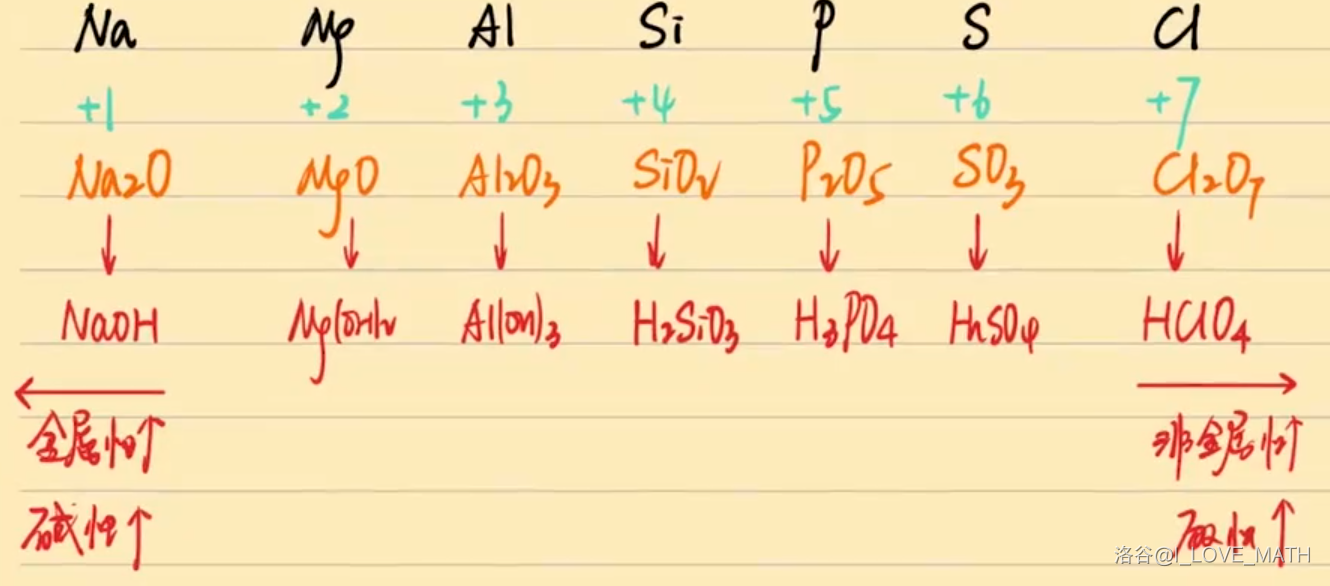 Na Mg Al Si P S Cl
+1 +2 +3 +4 +5 +6 +7
Na2O MgO Al2O3 SiO2 P2O5 SO3 Cl2O7
↓ ↓ ↓ ↓ ↓ ↓ ↓
NaOH Mg(OH)2 Al(OH)3 H2SiO3 H3PO4 H2SO4 HClO4
← →
金属性↑ 非金属性↑
碱性↑ 酸性↑
洛谷@I_LOVE_MATH